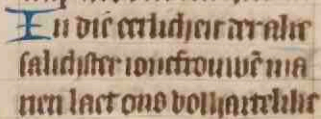 In die eerlicheit der alre
salichster ioncfrouwē ma
rien laet ons volhartelike